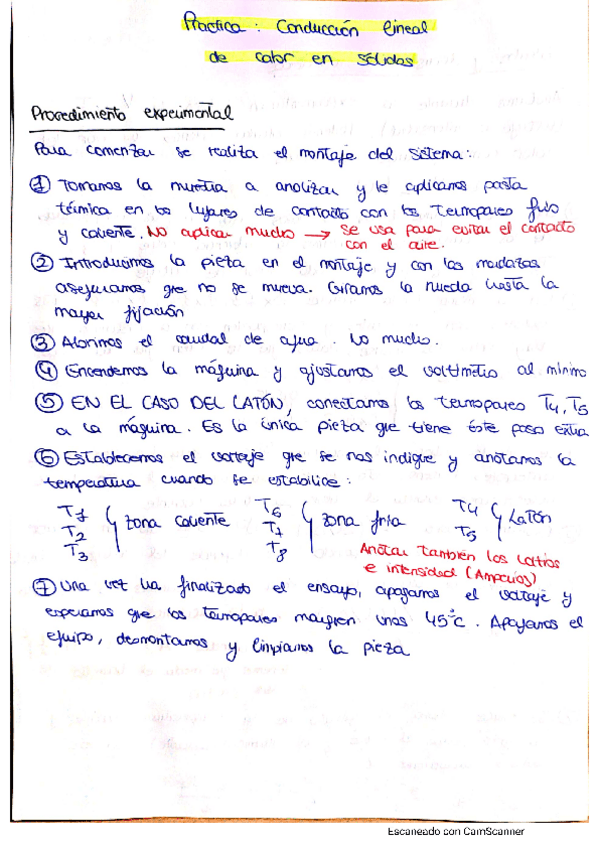 Practica: Conducción lineal
de calor en sólidos
Procedimiento experimental
Para comenzar se realiza el montaje del sistema:
① Tomamos la muestra a analizar y le aplicamos pasta
térmica en los lugares de contacto con los termopares frío
y caliente. No aplicar mucho → se usa para evitar el contacto
con el aire.
② Introducimos la pieza en el montaje y con las mordazas
aseguramos que no se mueva. Giramos la rueda hasta la
mayor fijación
③ Abrimos el caudal de agua. No mucho.
④ Encendemos la máquina y ajustamos el voltímetro al mínimo
⑤ EN EL CASO DEL LATÓN, conectamos los termopares T4, T5
a la máquina. Es la única pieza que tiene éste paso extra
⑥ Establecemos el voltaje que se nos indique y anotamos la
temperatura cuando se estabilice:
T1 T2 T3 } zona caliente T6 T7 T8 } zona fria T4 T5 } Latón
Anotar también los
e intensidad (Amperios)
⑦ Una vez ha finalizado el ensayo, apagamos el voltaje y
esperamos que los termopares marquen unos 45°C. Apagamos el
equipo, desmontamos y limpiamos la pieza
Escaneado con CamScanner